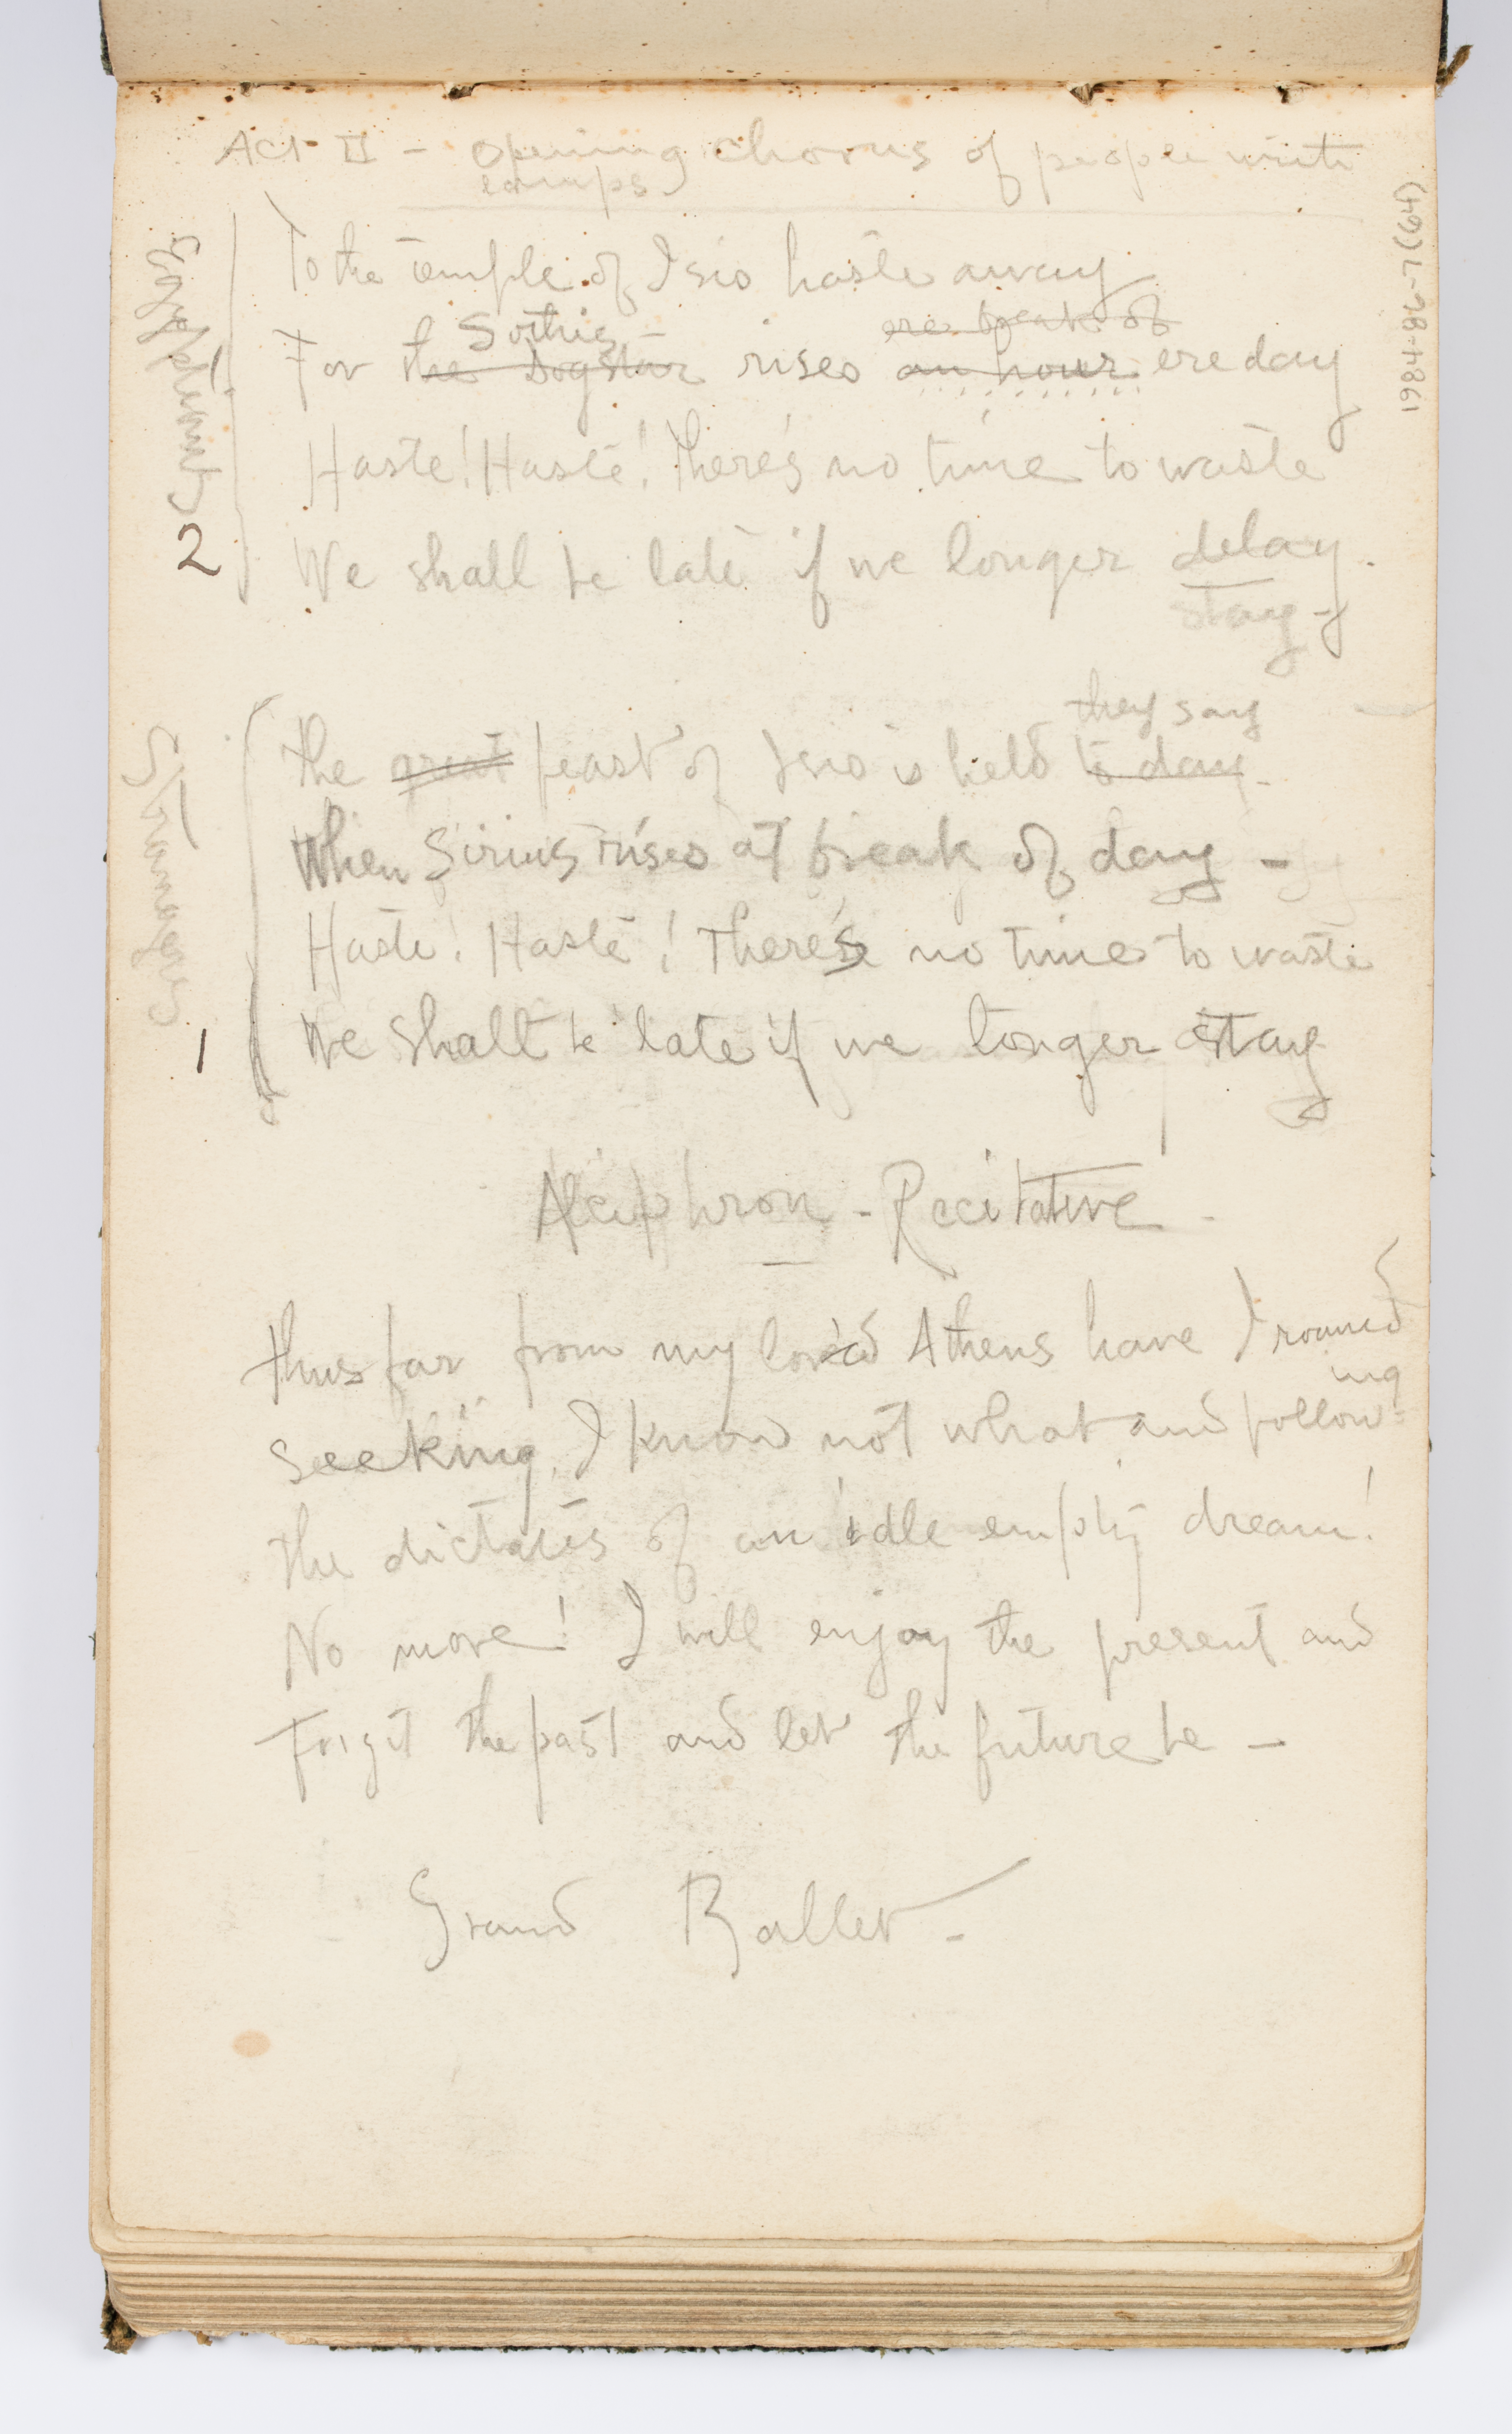 Act II - Opening chorus of people with
lamps
Egyptians
To the Temple of Isis haste away
Sothis ere break of
For the Dogstar rises an hour ere day
Haste! Haste! there's no time to waste
2 We shall be late if we longer delay.
stay -
Strangers
they say
The great feast of Isis is held to day -
When Sirius rises at break of day -
Haste! Haste! There's no time to waste
1 We shall be late if we longer stay
Alciphron - Recitative -
Thus far from my loved Athens have I roamed
ing
Seeking, I know not what and follow=
The dictates of an idle empty dream!
No more! I will enjoy the present and
Forget the past and let the future be -
Grand Ballet -
1984-86-7 (64)